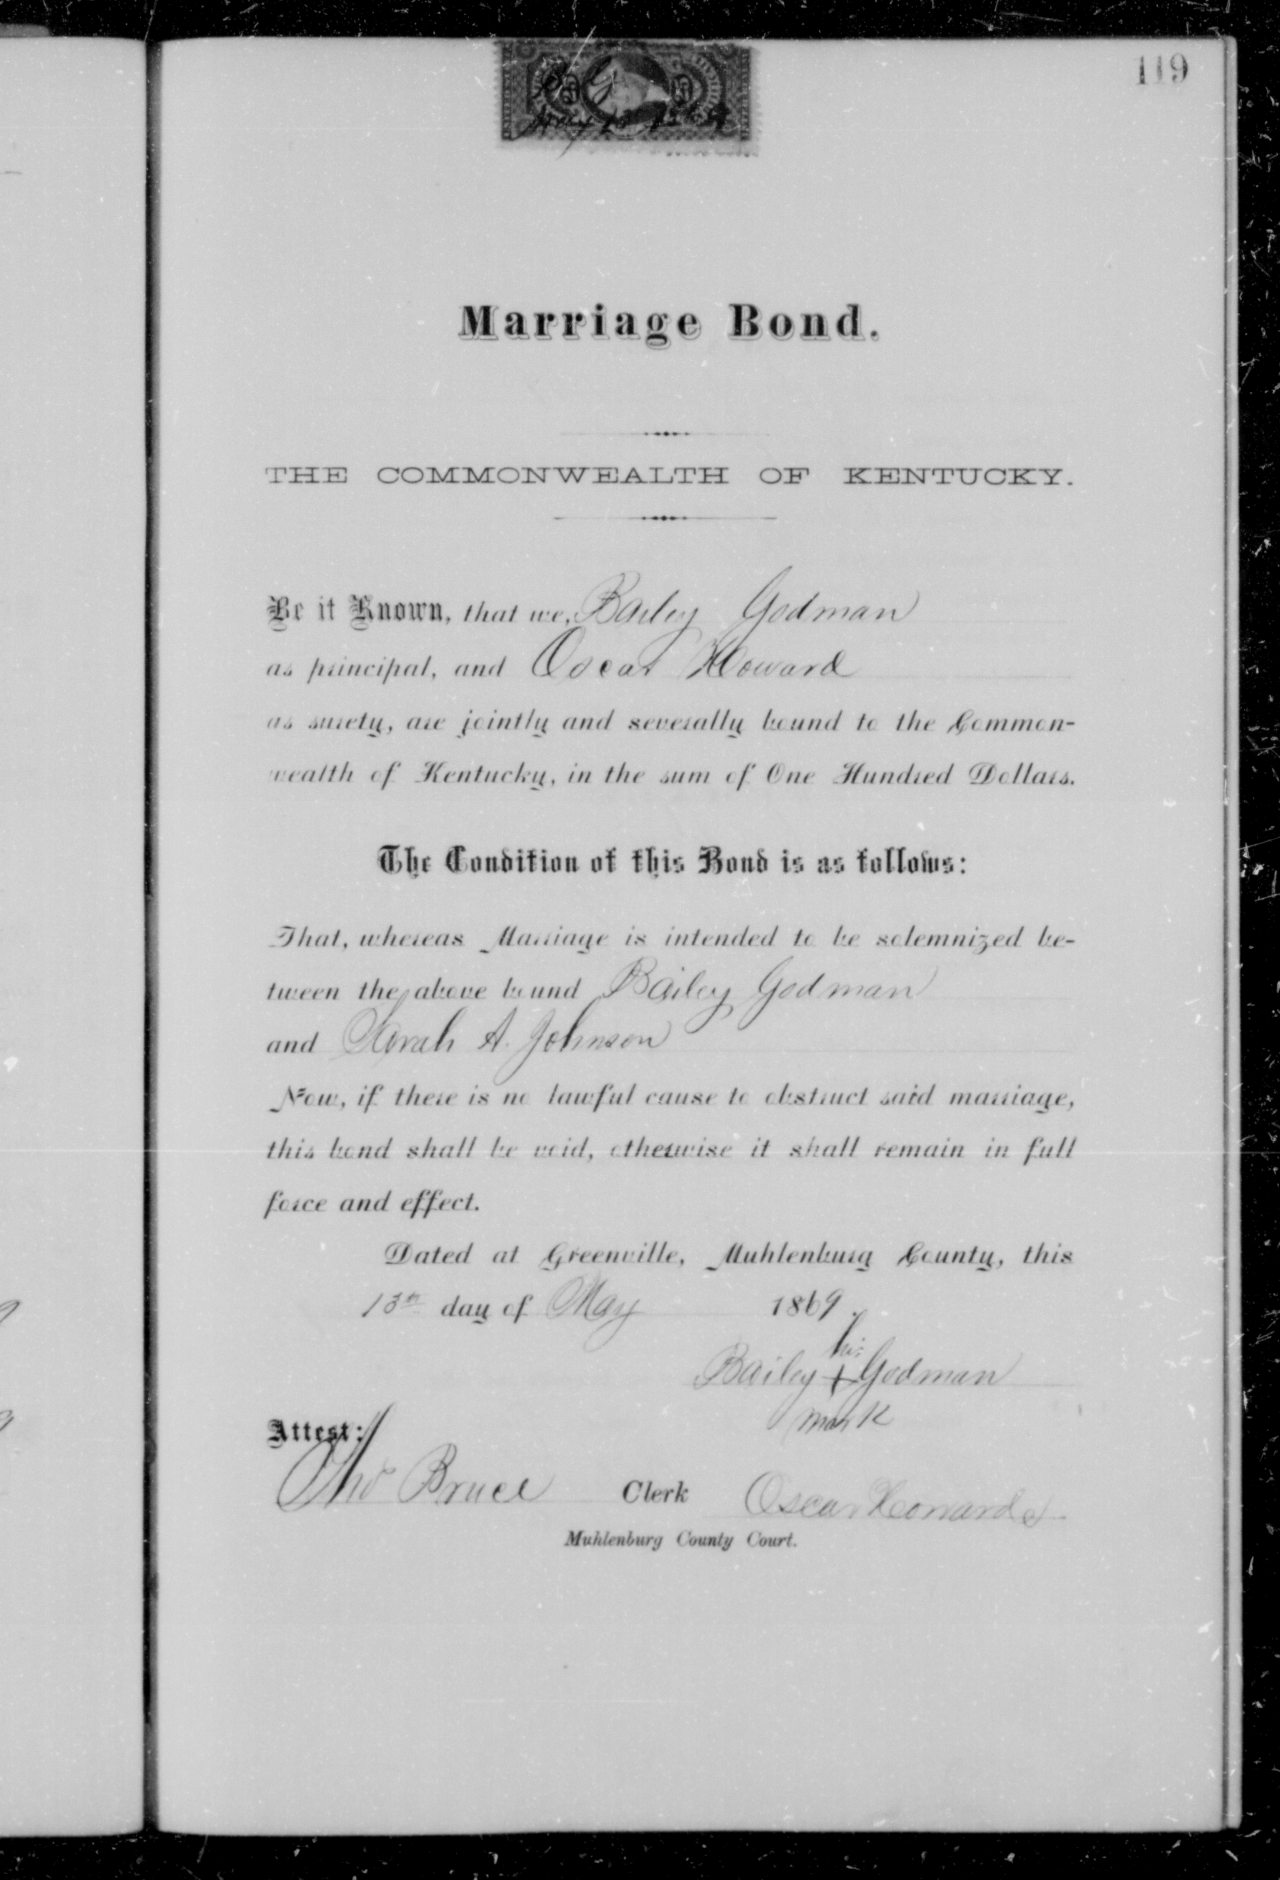 119
B G
May 13 1869
Marriage Bond.
THE COMMONWEALTH OF KENTUCKY.
Be it Known, that we, Bailey Godman
as principal, and Oscar Howard
as surety, are jointly and severally bound to the Common-
wealth of Kentucky, in the sum of One Hundred Dollars.
The Condition of this Bond is as follows:
That, whereas Marriage is intended to be solemnized be-
tween the above bound Bailey Godman
and Sarah A. Johnson
Now, if there is no lawful cause to obstruct said marriage,
this bond shall be void, otherwise it shall remain in full
force and effect.
Dated at Greenville, Muhlenburg County, this
13th day of May 1869.
his
Bailey + Godman
mark
Attest:
Tho Bruce Clerk Oscar Howard
Muhlenburg County Court.